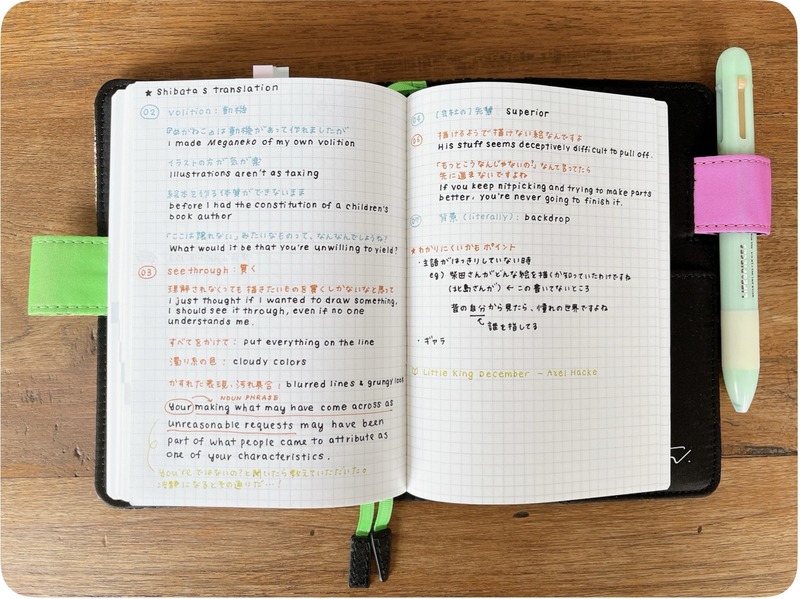 ★ Shibata's translation
02 volition：動機
『めがねこ』は動機があって作れましたが
I made Meganeko of my own volition
イラストの方が気が楽
Illustrations aren't as taxing
絵本を作る体質ができないまま
before I had the constitution of a children's
book author
「ここは譲れない」みたいなものって、なんなんでしょうね?
What would it be that you're unwilling to yield?
03 see through：貫く
理解されなくても描きたいものを貫くしかないなと思って
I just thought if I wanted to draw something,
I should see it through, even if no one
understands me.
すべてをかけて：put everything on the line
濁り系の色：cloudy colors
かすれた表現・汚れ具合；blurred lines & grungy look
NOUN PHRASE
Your making what may have come across as
unreasonable requests may have been
part of what people came to attribute as
one of your characteristics.
You'reではないの?と聞いたら教えていただいた
冷静になるとその通りだ…!
(会社の)先輩 Superior
描けるようで描けない絵なんですよ
His stuff seems deceptively difficult to pull off.
「もっとこうなんじゃないの?」なんて言ってたら
先に進まないですよね
If you keep nitpicking and trying to make parts
better, you're never going to finish it.
背景 (literally)：backdrop
★わかりにくいかもポイント
・主語がはっきりしていない時
eg) 柴田さんがどんな絵を描くか知っていたわけですね
(北島さんが) ← この書いてないところ
昔の自分から見たら、憧れの世界ですよね
誰を指してる
・ギャラ
Little King December - Axel Hacke